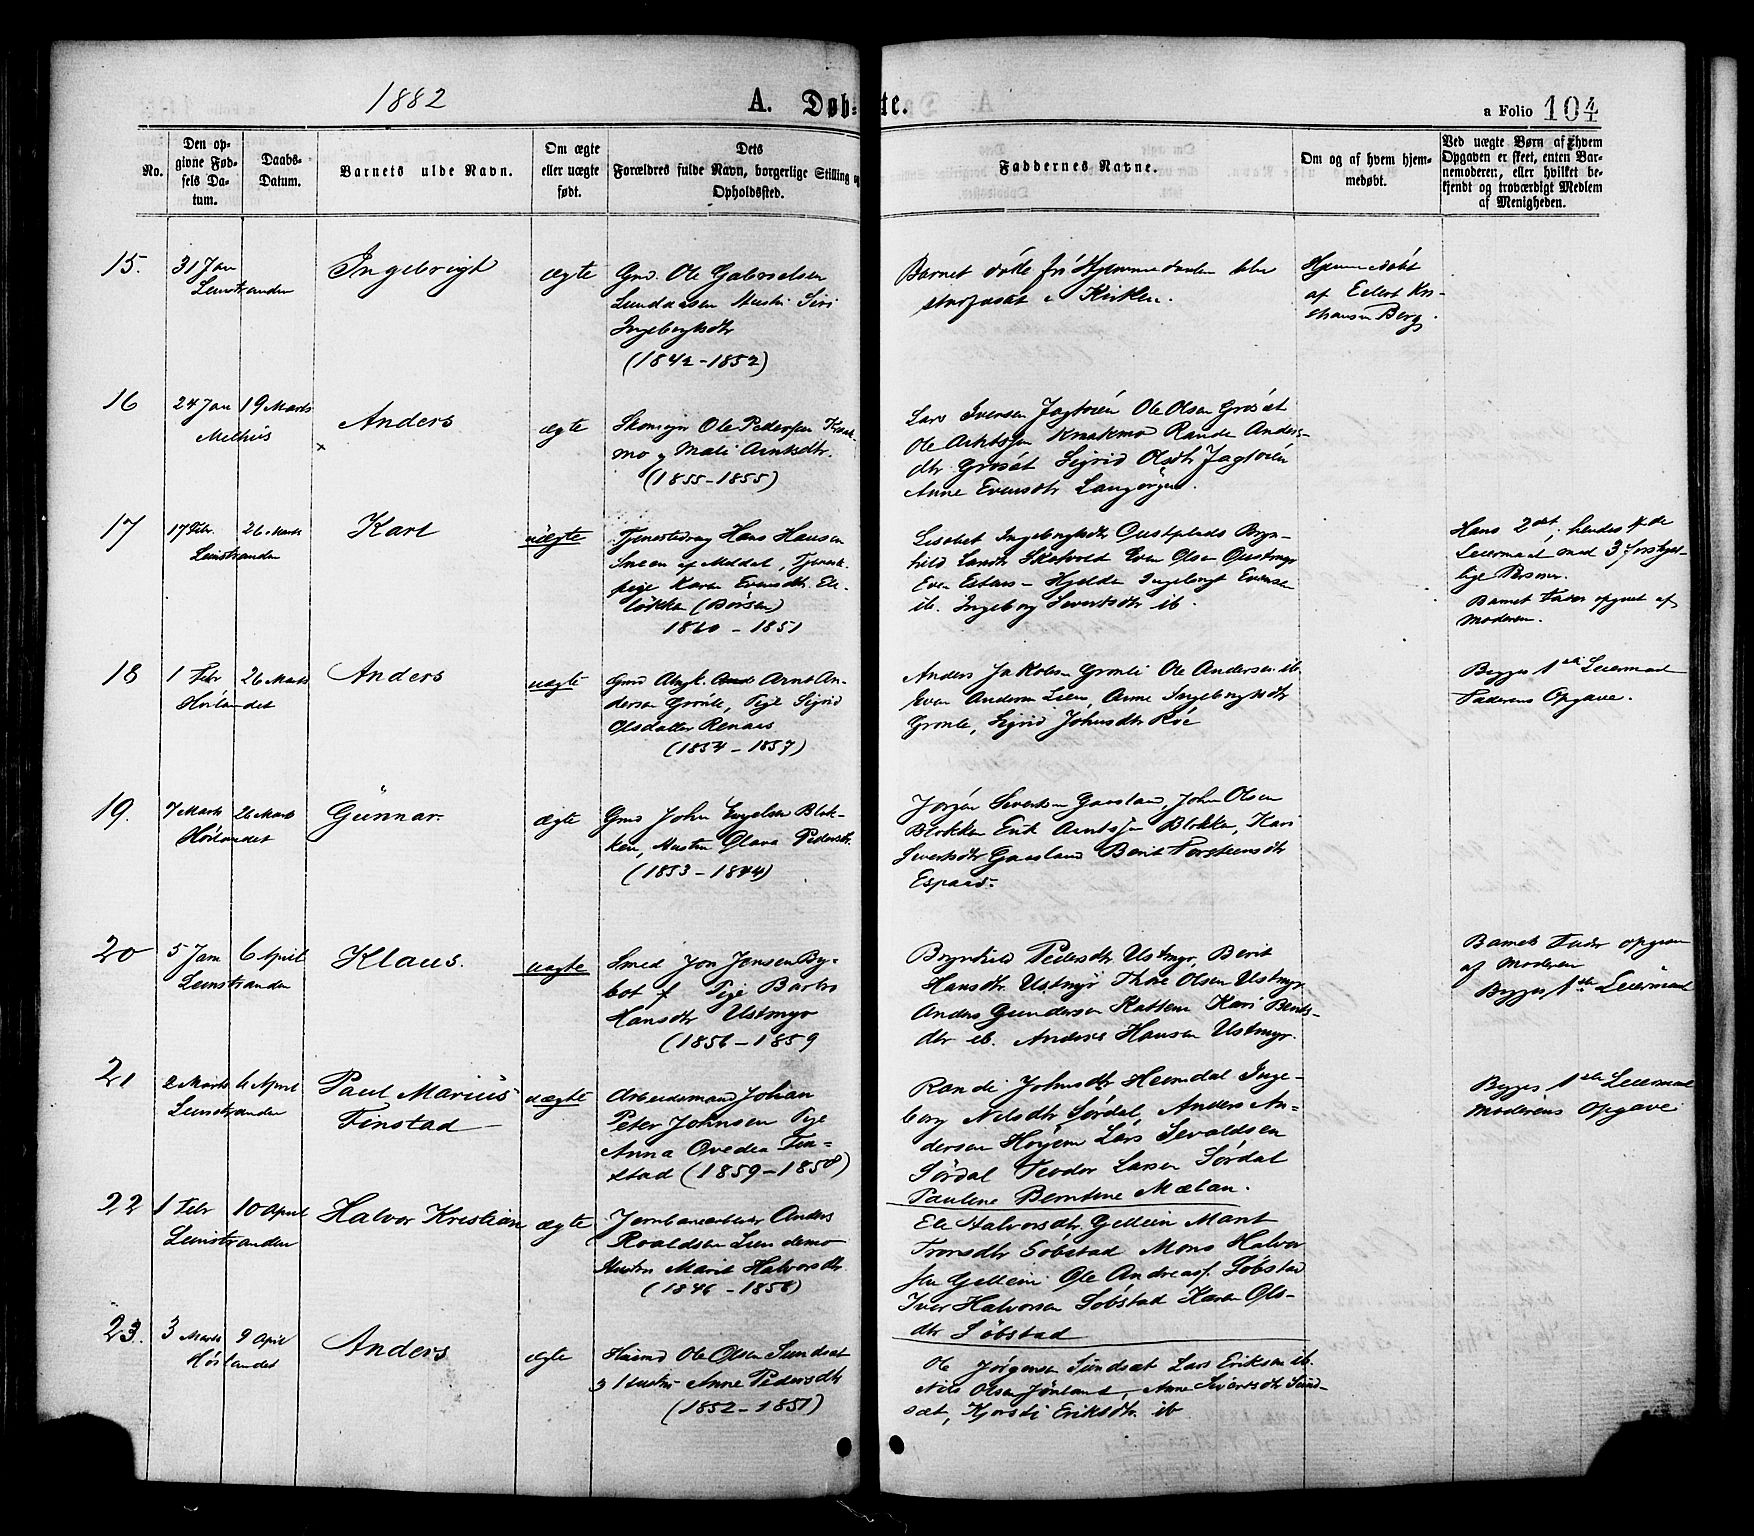 1882
A. Døb-
te.
a Folio 104
No.
Den op-
givne Fød-
sels Da-
tum.
Daabs-
Datum.
Barnets ulde Navn.
Om ægte
eller uægte
født.
Dets
Forældres fulde Navn, borgerlige Stilling og
Opholdssted.
Faddernes Navne.
Om og af hvem hjem-
medøbt.
Ved uægte Børn af hvem
Opgaven er skeet, enten Bar-
nemoderen, eller hvilket be-
kjendt og troværdigt Medlem
af Menigheden.
15.
31 Jan
Leinstranden
Ingebrigt
ægte
Gmd. Ole Gabrielsen
Hustru Siri
Ingebrigtsdtr
(1842-1852)
Barnet døde før
i Kirken.
Hjemmedøbt
af Eilert Kri-
stiansen Berg.
16
24 Jan 19 Marts
Melhus
Anders
ægte
Ole Pedersen Knak-
mo og Mali Arntsdtr.
(1855-1855)
Lars Iversen Jagtøien Ole Olsen Grøsæt
Ole Arntsen Knakmo Rande Anders-
dtr. Grøsæt Sigrid Olsdtr Jagtøien
Anne Evensdtr Langørgen.
17
17 Febr. 26 Marts
Leinstranden
Karl
uægte
Tjenestedreng Hans Hansen
Sneen af Meldal, Tjeneste-
pige Karen Evensdtr. Ek-
løkken (Børsen)
1860-1851
Lisabet Ingebrigtsdtr Oustplads Bryn-
hild Larsdtr Skjetvold Even Olsen Oustmyr
Even Estens- Hjelden Ingebrigt Evensen
ib. Ingeborg Sivertsdtr ib.
Hans 2det, hendes 4de
Leiermaal med 3 forskjel-
lige Personer.
Barnets Fader opgivet af
Moderen.
18
1 Febr 26 Marts
Hølandet
Anders
uægte
Arnt An-
dersen Grønli, Pige Sigrid
Olsdatter Renaas
(1854-1857)
Anders Jakobsen Grønli Ole Andersen ib.
Even Andersen Lien, Anne Ingebrigtsdtr
Grønli, Sigrid Johnsdtr Røe
Begges 1ste Leiermaal
Faderens Opgave.
19.
7 Marts 26 Marts
Hølandet
Gunnar
ægte
Gmd John Engelsen Blok-
ken, Hustru Olava Pedersdtr.
(1853-1844)
Jørgen Sivertsen Gaasland, John Olsen
Blokken Erik Arntsen Blokken, Kari
Sivertsdtr Gaasland Berit Torsteinsdtr
Espaas-
20
5 Jan 6 April
Leinstranden
Klaus.
uægte
Smed Jon Jensen By-
Pige Barbro
Hansdtr Ustmyr
(1856-1859
Brynhild Pedersdtr Ustmyr, Berit
Hansdtr. Ustmyr Thore Olsen Ustmyr
Anders Gundersen Rattem Kari Bents-
dtr ib. Anders Hansen Ustmyr.
Barnets Fader opgiven
af Moderen
Begges 1ste Leiermaal
21
2 Marts 6 April
Leinstranden
Paul Marius
Finstad
uægte
Arbeidsmand Johan
Peter Johnsen Pige
Anna Ovedia Fin-
stad (1859-1858)
Randi Johnsdtr Heimdal Inge-
borg Nilsdtr Sørdal, Anders An-
dersen Høyem Lars Sevaldsen
Sørdal Teodor Larsen Sørdal
Pauline Berntine Mælan.
Begges 1ste Leiermaal
Moderens Opgave
22
1 Febr 10 April
Leinstranden
Halvor Kristian
ægte
Jernbanearbeider Anders
Roaldsen Lundemo
Hustru Marit Halvorsdtr
(1846-1856)
Eli Halvorsdtr. Gellein Marit
Tronsdtr Søbstad Mons Halvor
sen Gellein Ole Andreas. Søbstad
Iver Halvorsen Søbstad Karen Ols-
dtr Søbstad
23.
3 Marts 9 April
Hølandet
Anders
ægte
Husmd Ole Olsen Sundsæt
og Hustru Anne Pedersdtr
(1852-1851)
Ole Jørgensen Sundsæt Lars Eriksen ib.
Nils Olsen Jønland, Anne Sivertsdtr Sund-
sæt, Kjersti Eriksdtr. ib